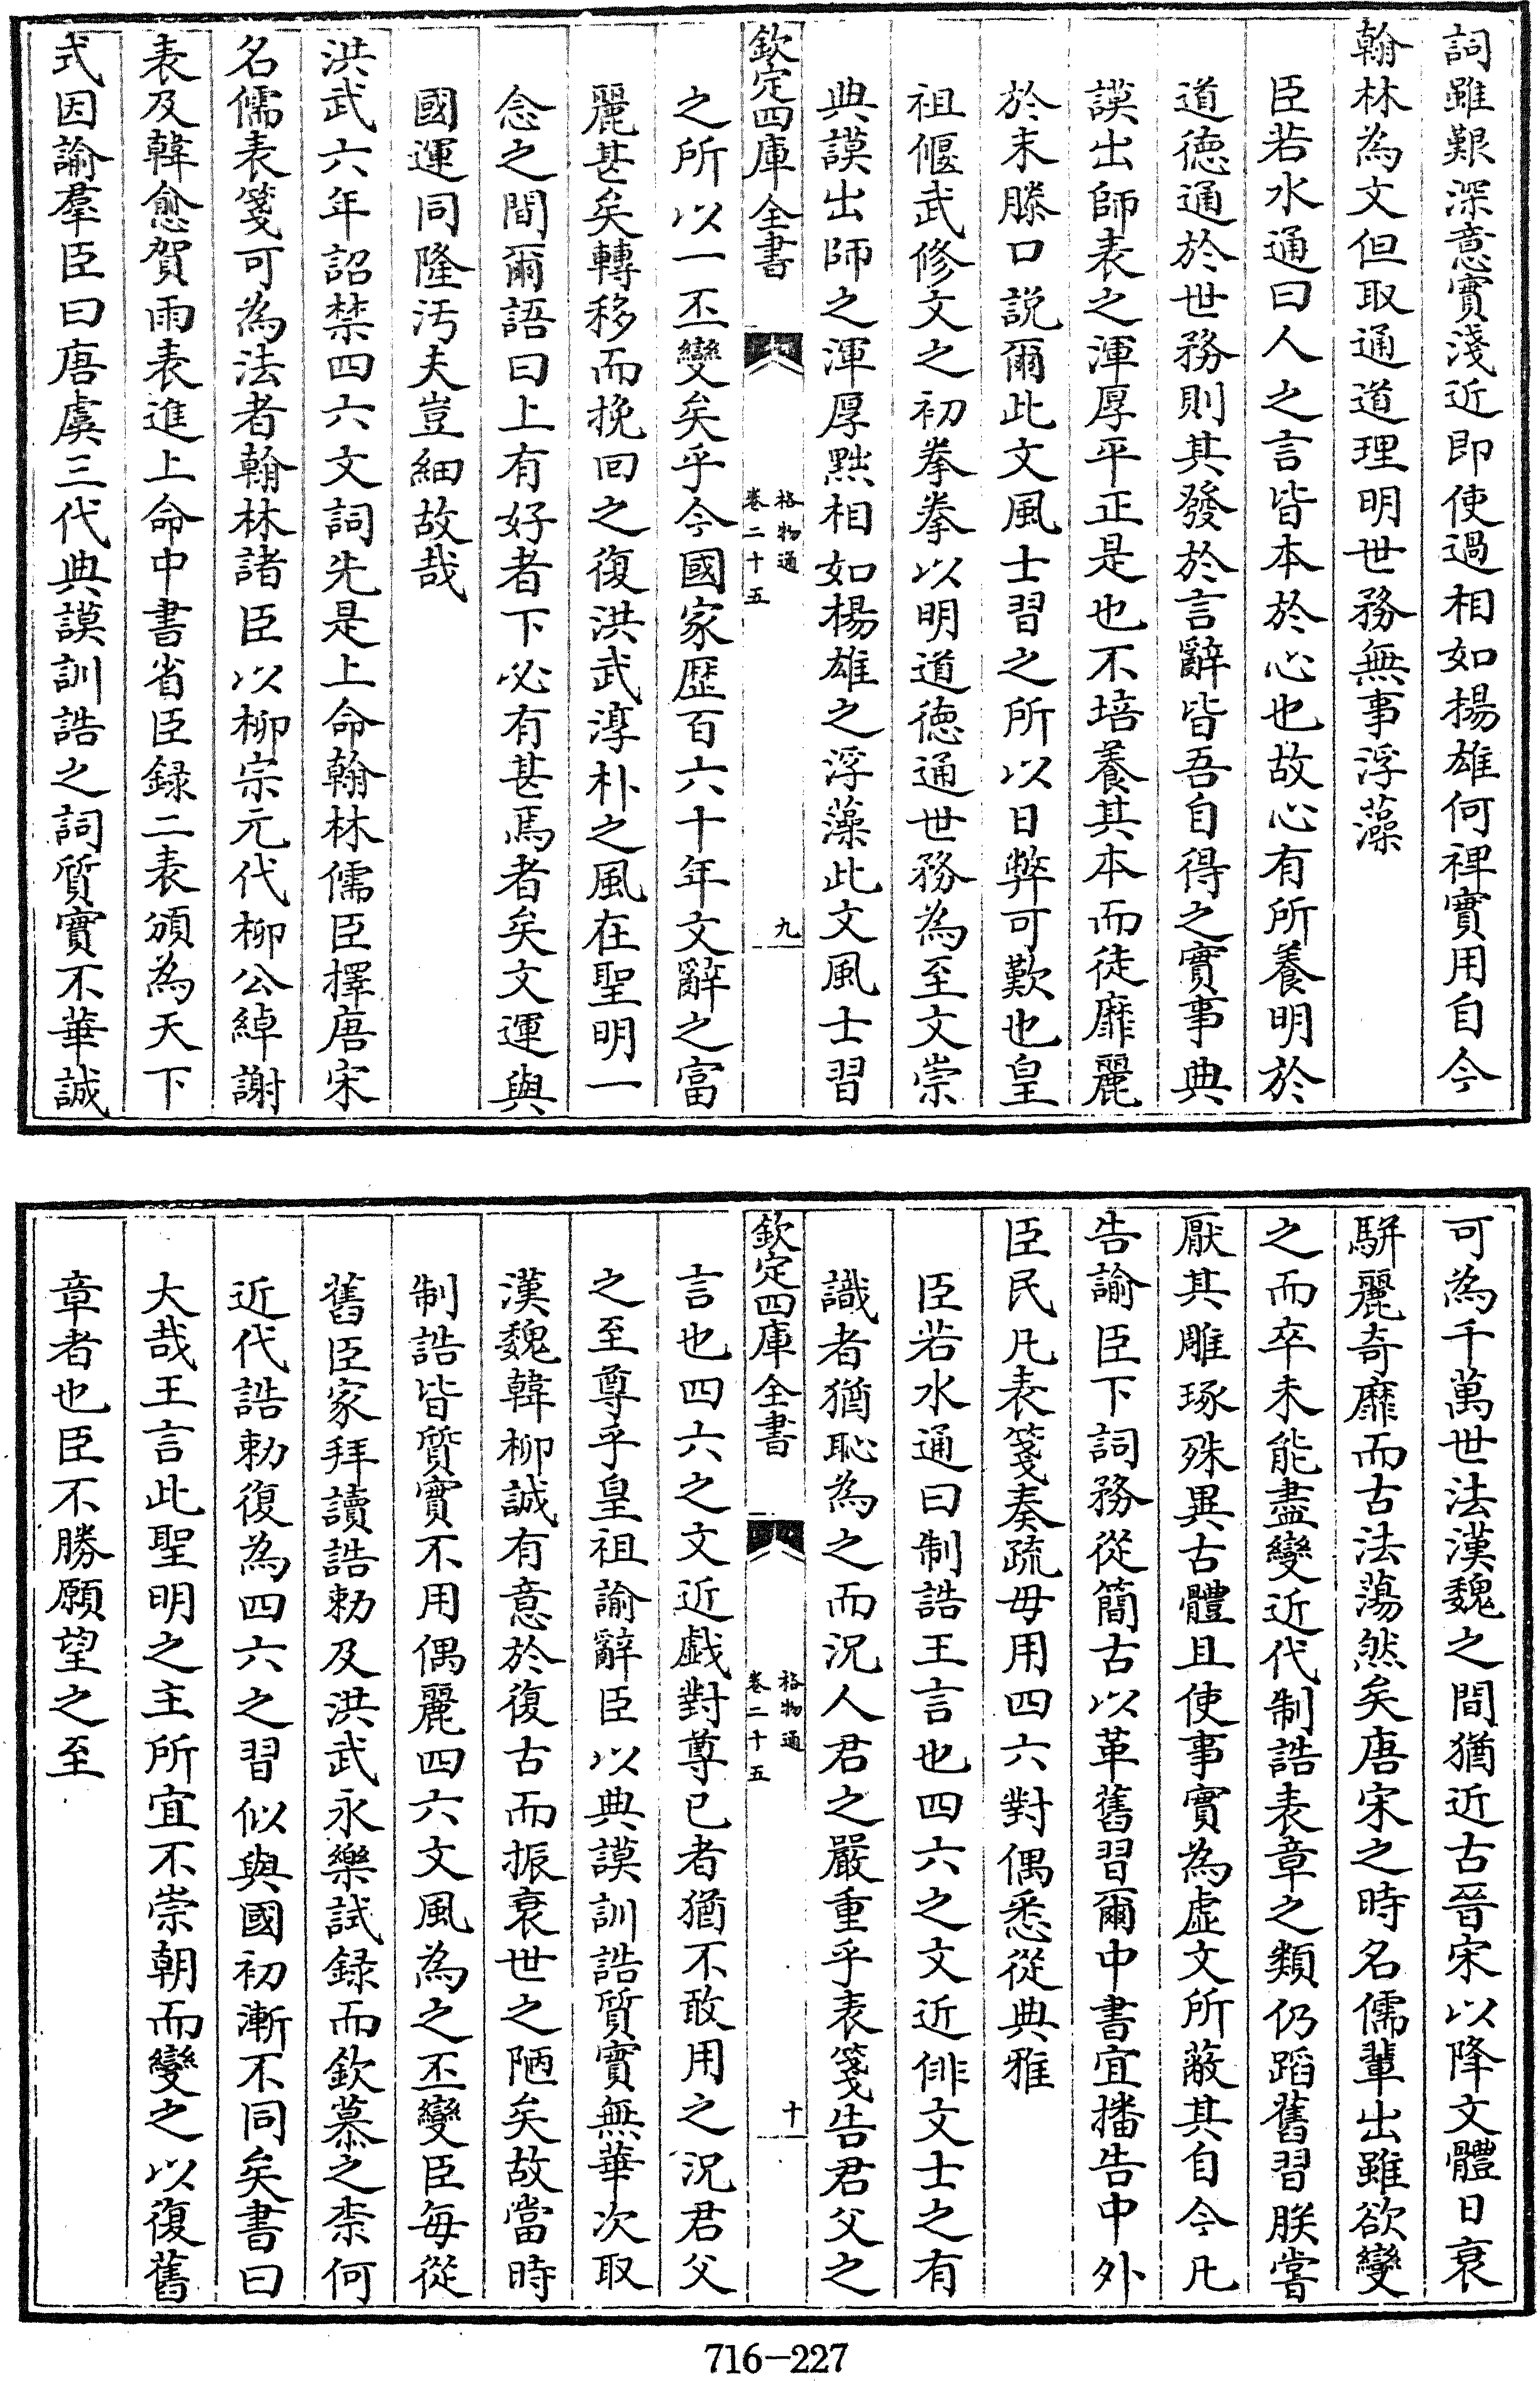 詞雖艱深意實淺近即使過相如揚雄何裨實用自今
翰林為文但取通道理明世務無事浮藻
臣若水通曰人之言皆本於心也故心有所養明於
道德通於世務則其發於言辭皆吾自得之實事典
謨出師表之渾厚平正是也不培養其本而徒靡麗
於末滕口説爾此文風士習之所以日弊可歎也皇
祖偃武修文之初拳拳以明道德通世務為至文崇
典謨出師之渾厚黜相如楊雄之浮藻此文風士習
欽定四庫全書
格物通
卷二十五
九
之所以一丕變矣乎今國家歴百六十年文辭之富
麗甚矣轉移而挽回之復洪武淳朴之風在聖明一
念之間爾語曰上有好者下必有甚焉者矣文運與
國運同隆汚夫豈細故哉
洪武六年詔禁四六文詞先是上命翰林儒臣擇唐宋
名儒表箋可為法者翰林諸臣以柳宗元代柳公綽謝
表及韓愈賀雨表進上命中書省臣録二表頒為天下
式因諭羣臣曰唐虞三代典謨訓誥之詞質實不華誠
可為千萬世法漢魏之間猶近古晉宋以降文體日衰
駢麗奇靡而古法蕩然矣唐宋之時名儒輩出雖欲變
之而卒未能盡變近代制誥表章之類仍蹈舊習朕嘗
厭其雕琢殊異古體且使事實為虛文所蔽其自今凡
告諭臣下詞務從簡古以革舊習爾中書宜播告中外
臣民凡表箋奏疏毋用四六對偶悉從典雅
臣若水通曰制誥王言也四六之文近俳文士之有
識者猶恥為之而況人君之嚴重乎表箋告君父之
欽定四庫全書
格物通
卷二十五
十
言也四六之文近戲對尊已者猶不敢用之況君父
之至尊乎皇祖諭辭臣以典謨訓誥質實無華次取
漢魏韓柳誠有意於復古而振衰世之陋矣故當時
制誥皆質實不用偶麗四六文風為之丕變臣每從
舊臣家拜讀誥勅及洪武永樂試録而欽慕之柰何
近代誥勅復為四六之習似與國初漸不同矣書曰
大哉王言此聖明之主所宜不崇朝而變之以復舊
章者也臣不勝願望之至
716-227